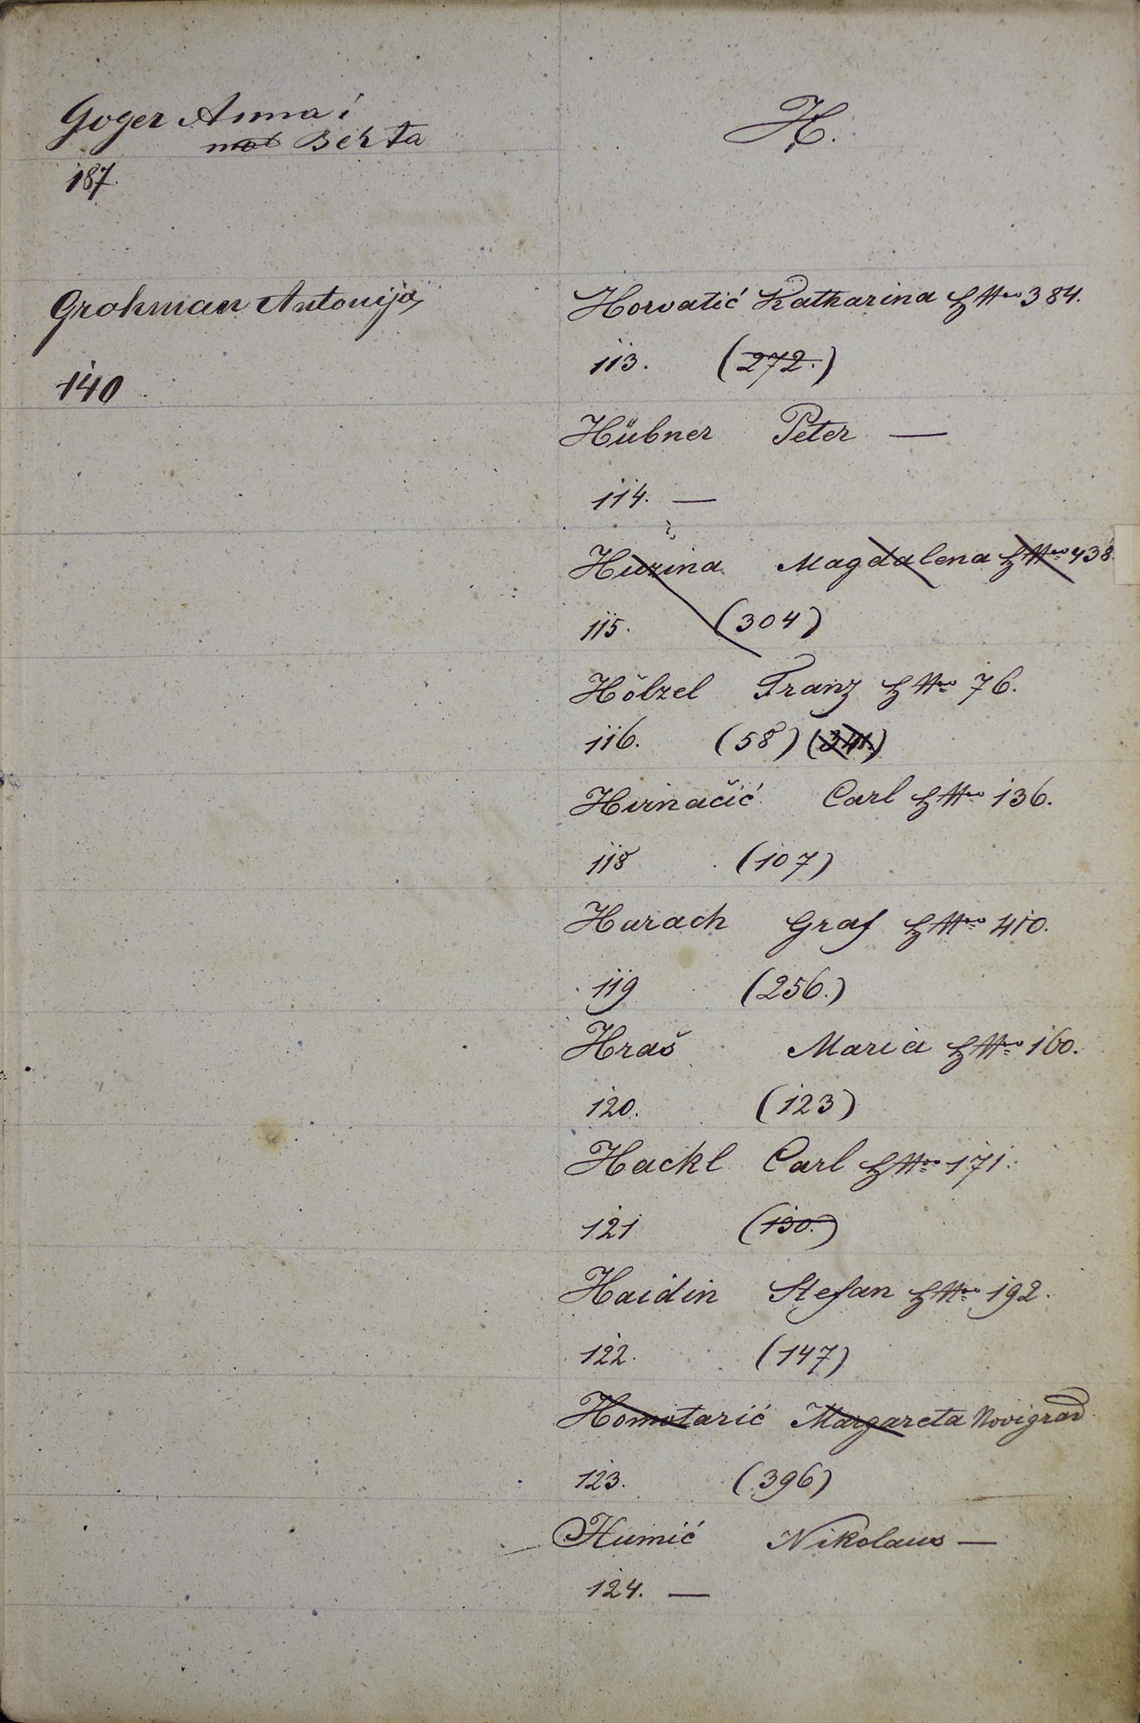 Goger Anna i
Berta
187.
Grohman Antonija
140
H.
Horvatić Katharina HNro 384.
113. (272.)
Hübner Peter —
114. —
Huzina Magdalena HNro 438
115. (304)
Hölzel Franz HNro 76.
116. (58) (341.)
Hirnačić Carl HNro 136.
118 (107)
Harach Graf HNro 410.
119 (256.)
Hraš Maria HNro 160.
120. (123)
Hackl Carl HNro 171.
121 (130.)
Haidin Stefan HNro 192.
122. (147)
Homotarić Margareta Novigrad
123. (396)
Humić Nikolaus —
124. —